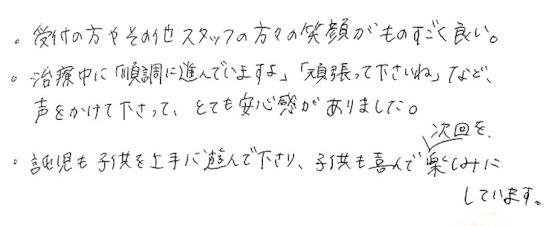 ・受付の方やその他スタッフの方々の笑顔がものすごく良い。
・治療中に「順調に進んでいますよ」「頑張って下さいね」など、
声をかけて下さって、とても安心感がありました。
次回を、
・託児も子供を上手に遊んで下さり、子供も喜んで楽しみに
しています。